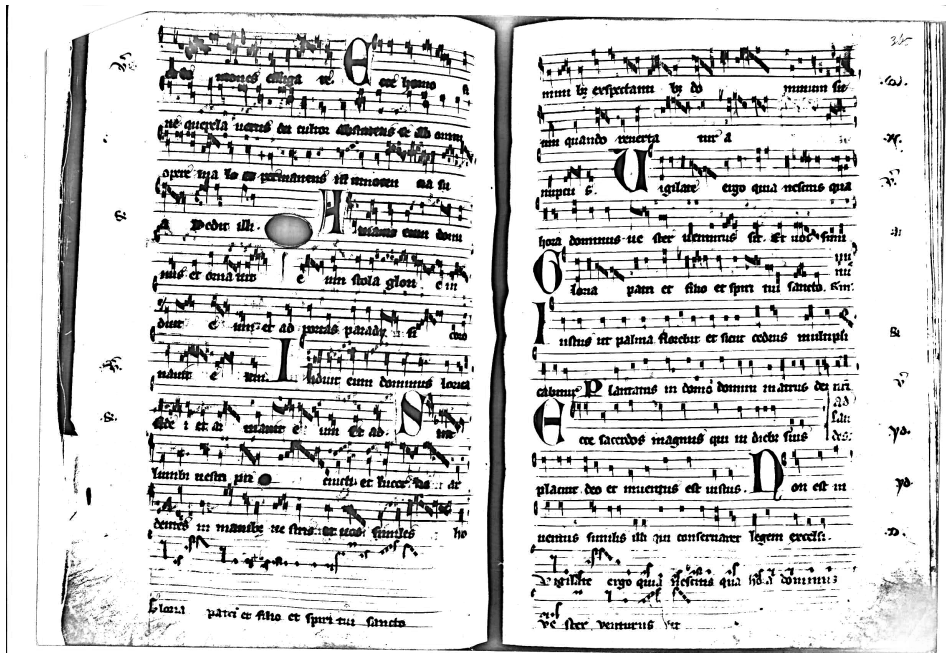 mones elliga ve Ecce homo si
ne querela uerus dei cultor abstinens se ab omni
opere ma lo et permanens in innocen cia su
a Pedir illi. Amauit eum domi
nus et orna uit e um stola glori e in
duit e um et ad portas parady si coro
nauit e um. Induit eum dominus lorica
fidei et or nauit e um Et ad. Sint
lumbi uestri pre cincti et lucer ne ar
dentes in manibus ue stris et uos similes ho
Gloria patri et filio et spiri tui sancto
mini bus exspectanti bus do minum su
um quando reuerta tur a
nuptii s. Uigilate ergo quia nescitis qua
hora dominus ue ster uenturus sit. Et uos simi
Gloria patri et filio et spiri tui sancto.
Iustus ut palma florebit et sicut cedrus multipli
cabitur Plantatus in domo domini in atriis dei nri
ad
lau
des.
Ecce sacerdos magnus qui in diebus suis
placuit deo et inuentus est iustus. Non est in
uentus similis illi qui conseruaret legem excelsi.
Vigilate ergo quia nescitis qua hora dominus
ve ster venturus sit